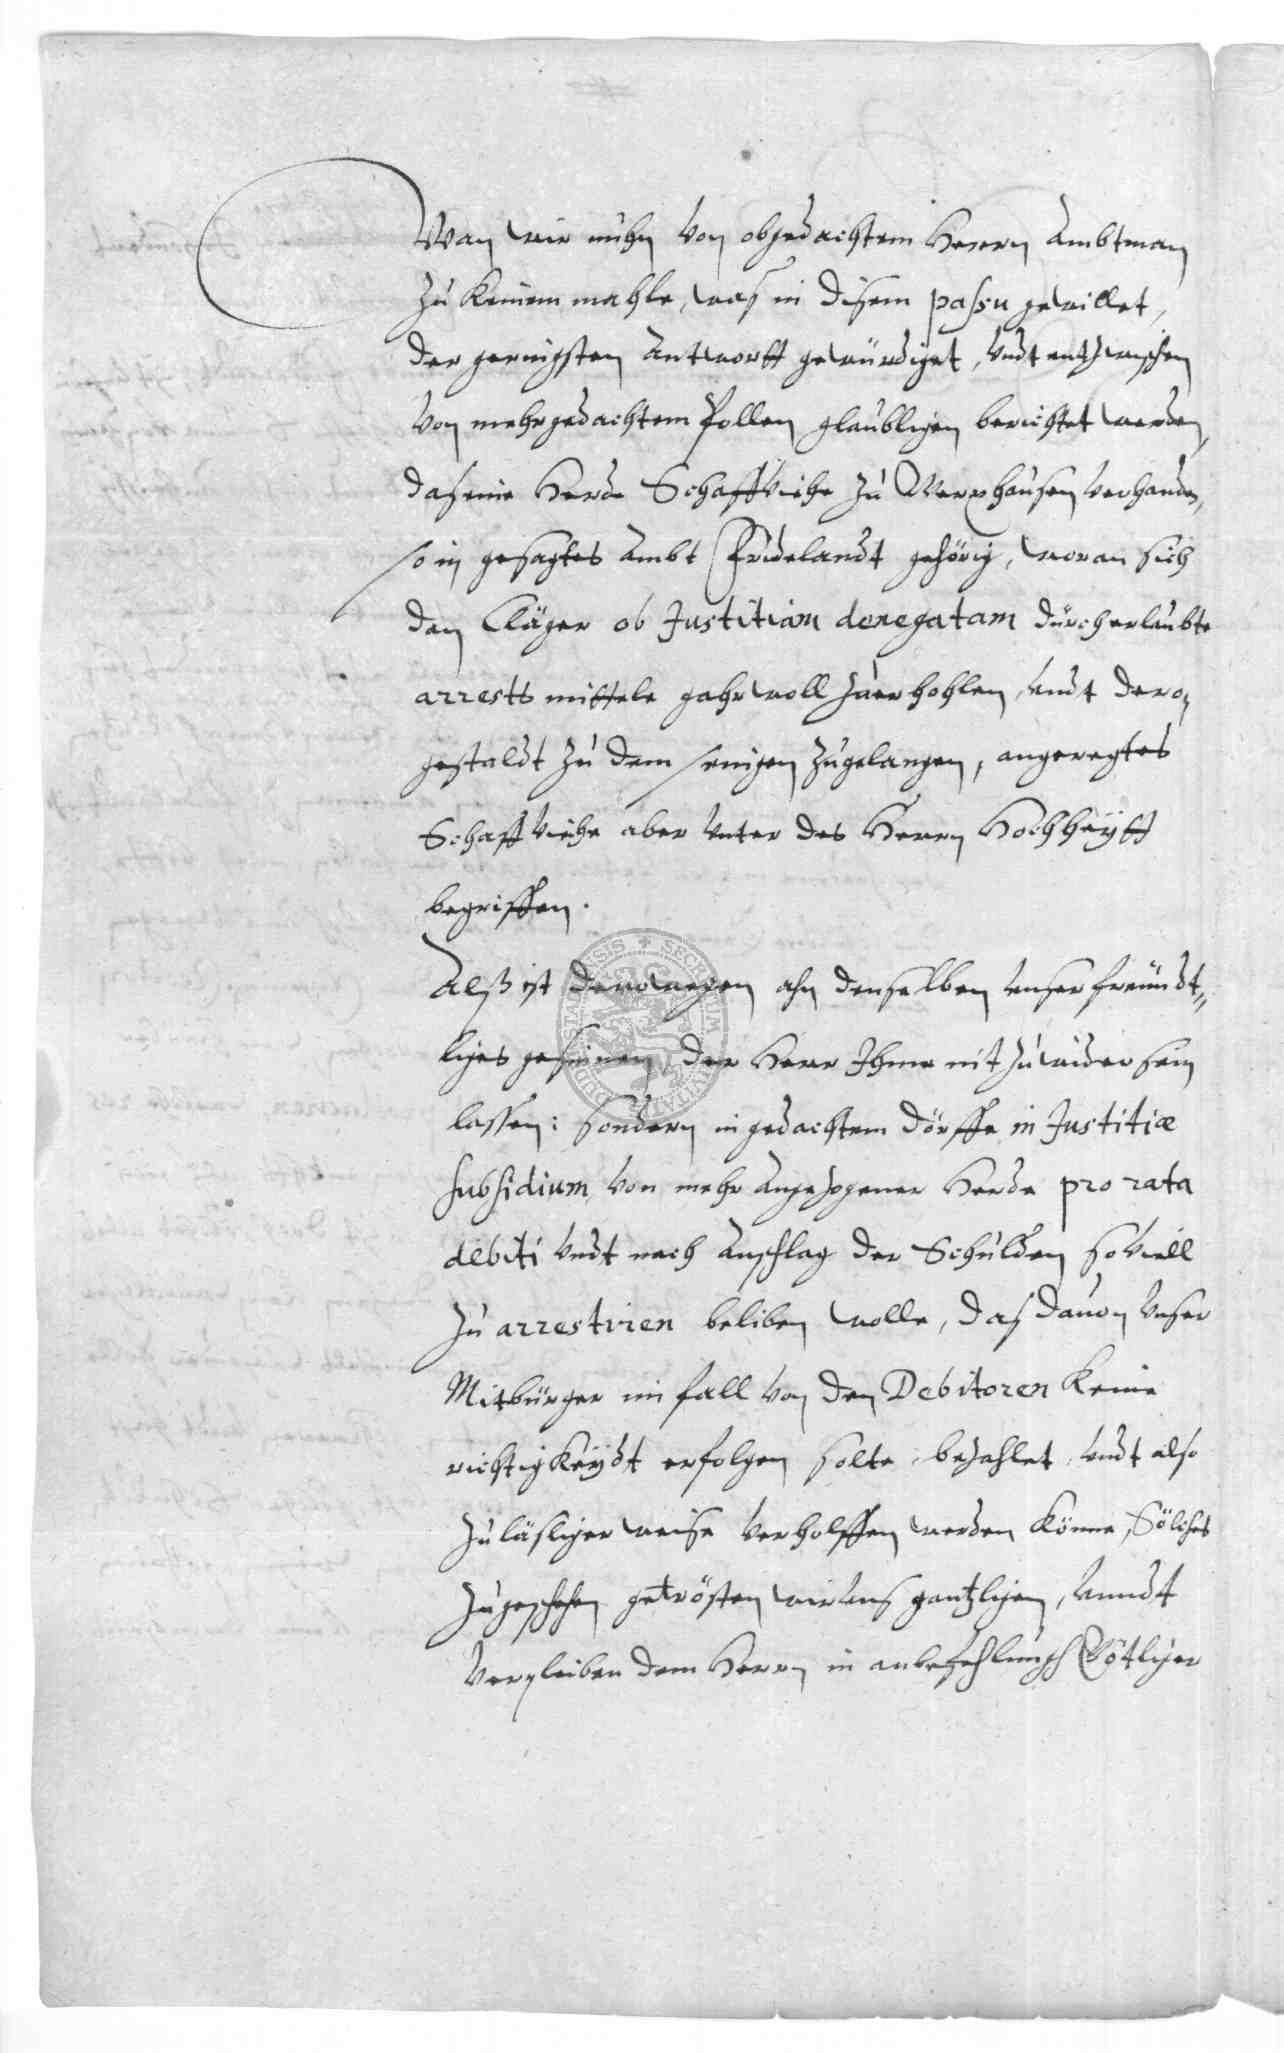 Wan wir nuhn von obgedachtem Herrn Ambtman
zu keinem mahle, was in disem passu gewillet,
der geringsten Antwortt gewürdiget, undt entzwischen
von mehrgedachtem Pollen glaubligen berichtet werden,
das eine Herde Schaffviehe zu Werxhausen verhanden,
so in gesagtes Ambt Fridelandt gehörig, woran sich
den Cläger ob Justitiam denegatam durch erlaubte
arrests mittele gahr woll zu erhohlen, undt dero
gestaldt zu dem seinigen zugelangen, angeregtes
Schaff viehe aber unter des Herrn Hochheytt
begriffen.
Alß ist derowegen ahn denselben unser freundt„
liges gesinnen, der Herr Ihme nit zuwider sein
lassen: sondern in gedachtem Dörffe in Justitiæ
subsidium von mehr angezogener Herde pro rata
debiti undt nach Anschlag der Schulden soviell
zu arrestiren beliben wolle, das davon unser
Mitbürger im fall von den Debitoren keine
richtigkeydt erfolgen solte, bezahlet undt also
zuläsliger weise verholffen werden könne, Sölches
zugeschehen getrösten wir uns gantzligen, unndt
verpleiben dem Herrn in anbefehlungh Götliger